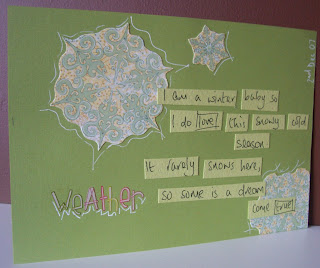 Dec 07
I am a winter baby so
I do love this snowy cold
season
It rarely snows here,
so some is a dream
come true!
weAther